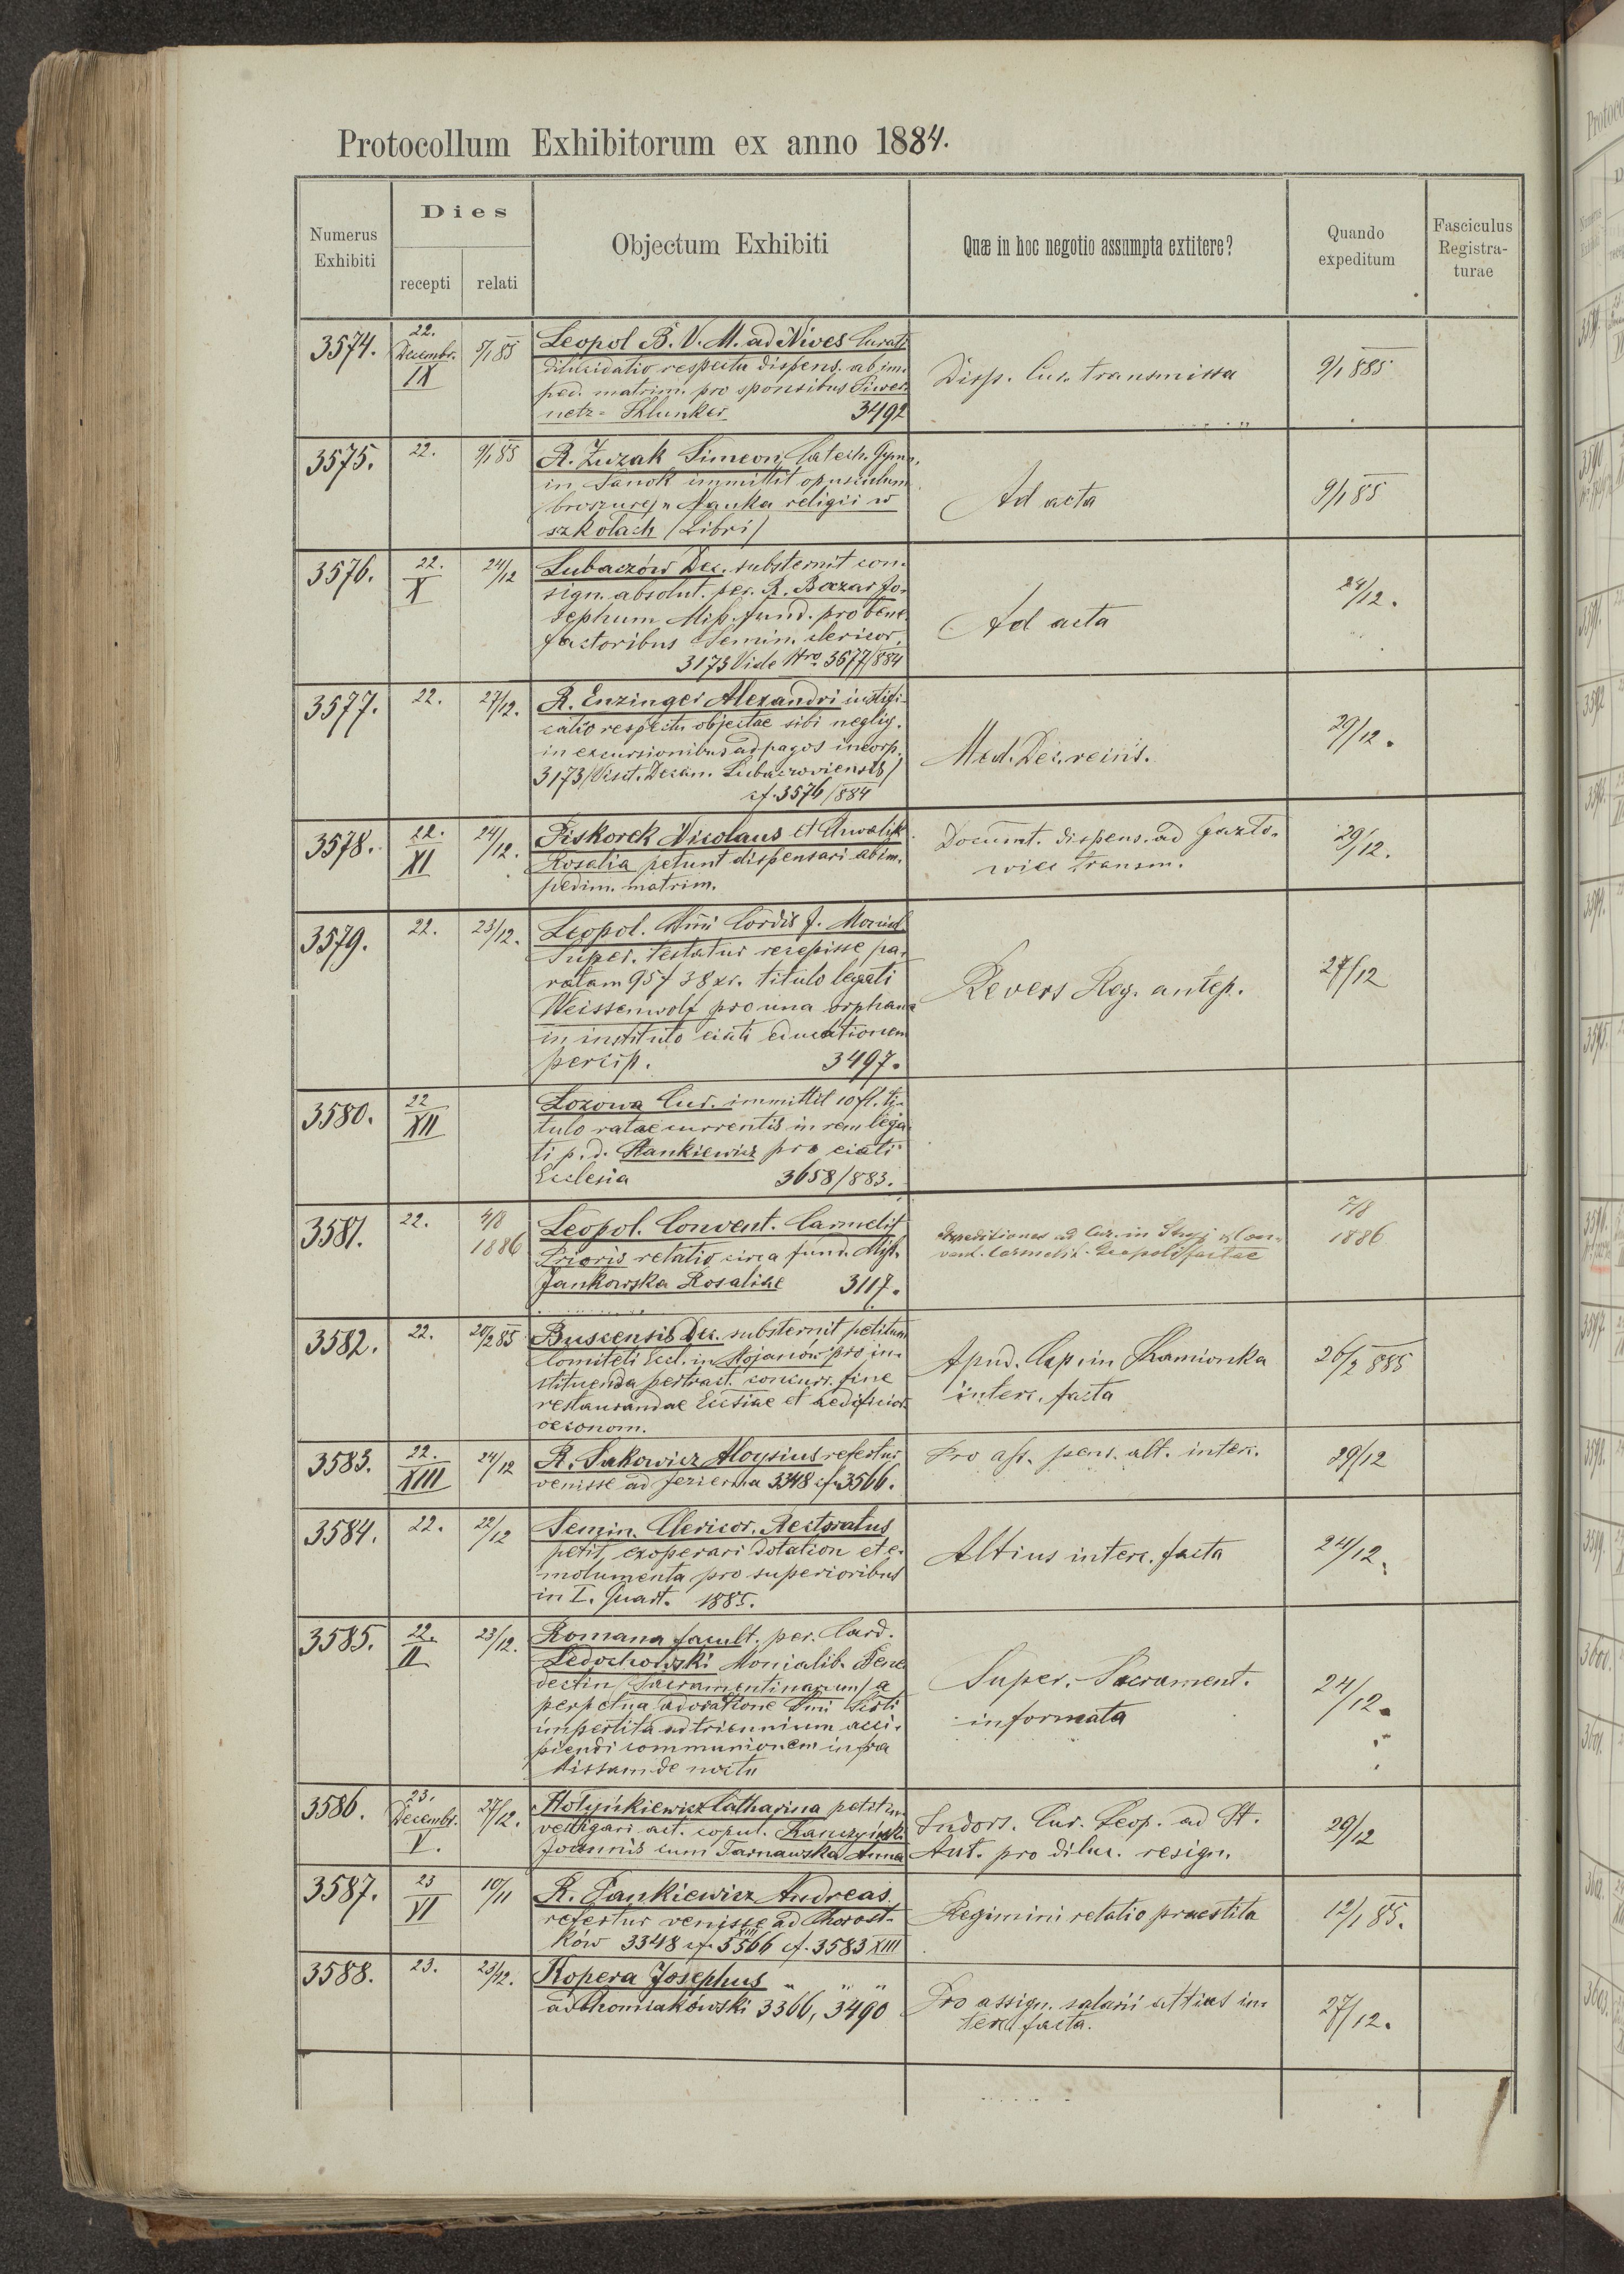 Protocollum Exhibitorum ex anno 1884.
Numerus Exhibiti
Dies
recepti
relati
Objectum Exhibiti
Quæ in hoc negotio assumpta extitere?
Quando expeditum
Fasciculus Registra-
turae
3574.
22.
Decembr.
IX
5/1 85
Leopol B. V. M. ad Nives Curati
dilucidatio respectu dispens. ab im-
ped. matrim. pro sponsibus
netz - Sklunker 3492
Disp. Cur. transmissa
9/1 885
3575.
22.
9/1 85
R. Zuzak Simeon, Catech. Gymn.
in Sanok immittit opusculum
(broszurę) "Nauka religii w
szkołach (Libri)
Ad acta
9/1 85
3576.
22.
X
24/12
Lubaczów Dec. substernit con-
sign. absolut. per. R. Bazar Jo-
sephum Miss. fund. pro bene-
factoribus Semin. clericor.
3173 Vide Nro 3577/884
Ad acta
24/12.
3577.
22.
27/12.
R. Enzinger Alexandri iustifi-
catio respectu objectae sibi neglig.
in excursionibus ad pagos incorp.
3173 (Visit. Decan. Lubaczoviensis)
cf. 3576/884
Med. Dec. reins.
29/12.
3578.
22.
XI
24/12.
Piskorek Nicolaus et Chwalik
Rosalia petunt dispensari ab im-
pedim. matrim.
Documt. dispens. ad Gazto-
wice transm.
29/12.
3579.
22.
23/12.
Leopol. Smi Cordis J. Monial.
Super. testatur recepisse pa-
ratam 95 f 38 xr. titulo legati
Weissenwolf pro una orphana
in instituto eiati educationem
percip. 3497.
Revers Reg. antep.
27/12
3580.
22
XII
Lozowa Cur. immittit 10 fl. ti-
tulo ratae currentis in rem lega-
ti p. d. Stankiewicz pro eiati
Ecclesia 3658/883.
3581.
22.
4/8
1886
Leopol. Convent. Carmelit
Prioris relatio circa fund. Miss.
Jankowska Rosaliae 3117.
Expeditiones ad Cur. in Stryj et Con-
vent. Carmelit. Leopoli factae
7/8
1886
3582.
22.
20/2 85
Buscensis Dec. substernit petitum
Comiteti Eccl. in Stojanów pro in-
stituenda pertract. concurr. fine
restaurandae Eccsiae et aedificior.
oeconom.
Apud. Cap. in Kamionka
interc. facta
26/2 885
3583.
22.
XIII
24/12
R. Sakowicz Aloysius refertur
venisse ad Jezierna 3348 cf. 3566.
Pro ass. pens. alt. interc.
29/12
3584.
22.
22/12
Semin. Clericor. Rectoratus
petit, exoperari dotation et e-
molumenta pro superioribus
in I. Quart. 1885.
Altius interc. facta
24/12.
3585.
22.
II
23/12.
Romana facult. per. Card.
Ledochowski Monialib. Bene-
dectin (Sacramentinarum) a
perpetua adoratione Smi Ssti
impertita ad triennium acci-
piendi communionem infra
Missam de noctu
Super. Sacrament.
informata
24/12.
3586.
23.
Decembr.
V.
27/12.
Hołyńkiewicz Catharina petit in-
vestigari act. copul.
Joannis cum Tarnawska Anna
Indors. Cur. Leop. ad St.
Ant. pro diluc. resign.
29/12
3587.
23
VI
10/11
R. Pankiewicz Andreas
refertur venisse ad Chorost-
ków 3348 cf. 3566 XIII cf. 3583 XIII
Regimini relatio praestita
12/1 85.
3588.
23.
23/12.
Kopera Josephus " " "
ad Chomiakówski 3366, 3490
Pro assign. salarii altius in-
terc. facta.
27/12.